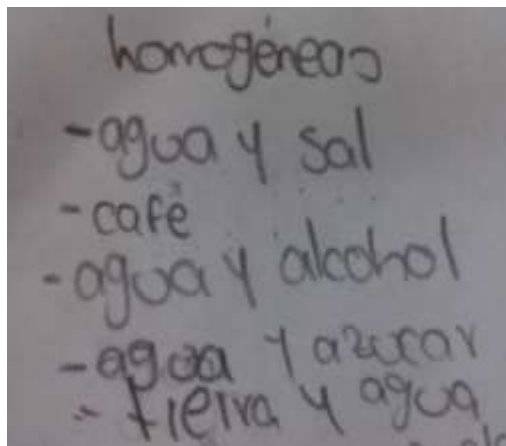 homogéneas
-agua y sal
-café
-agua y alcohol
-agua y azucar
-tierra y agua